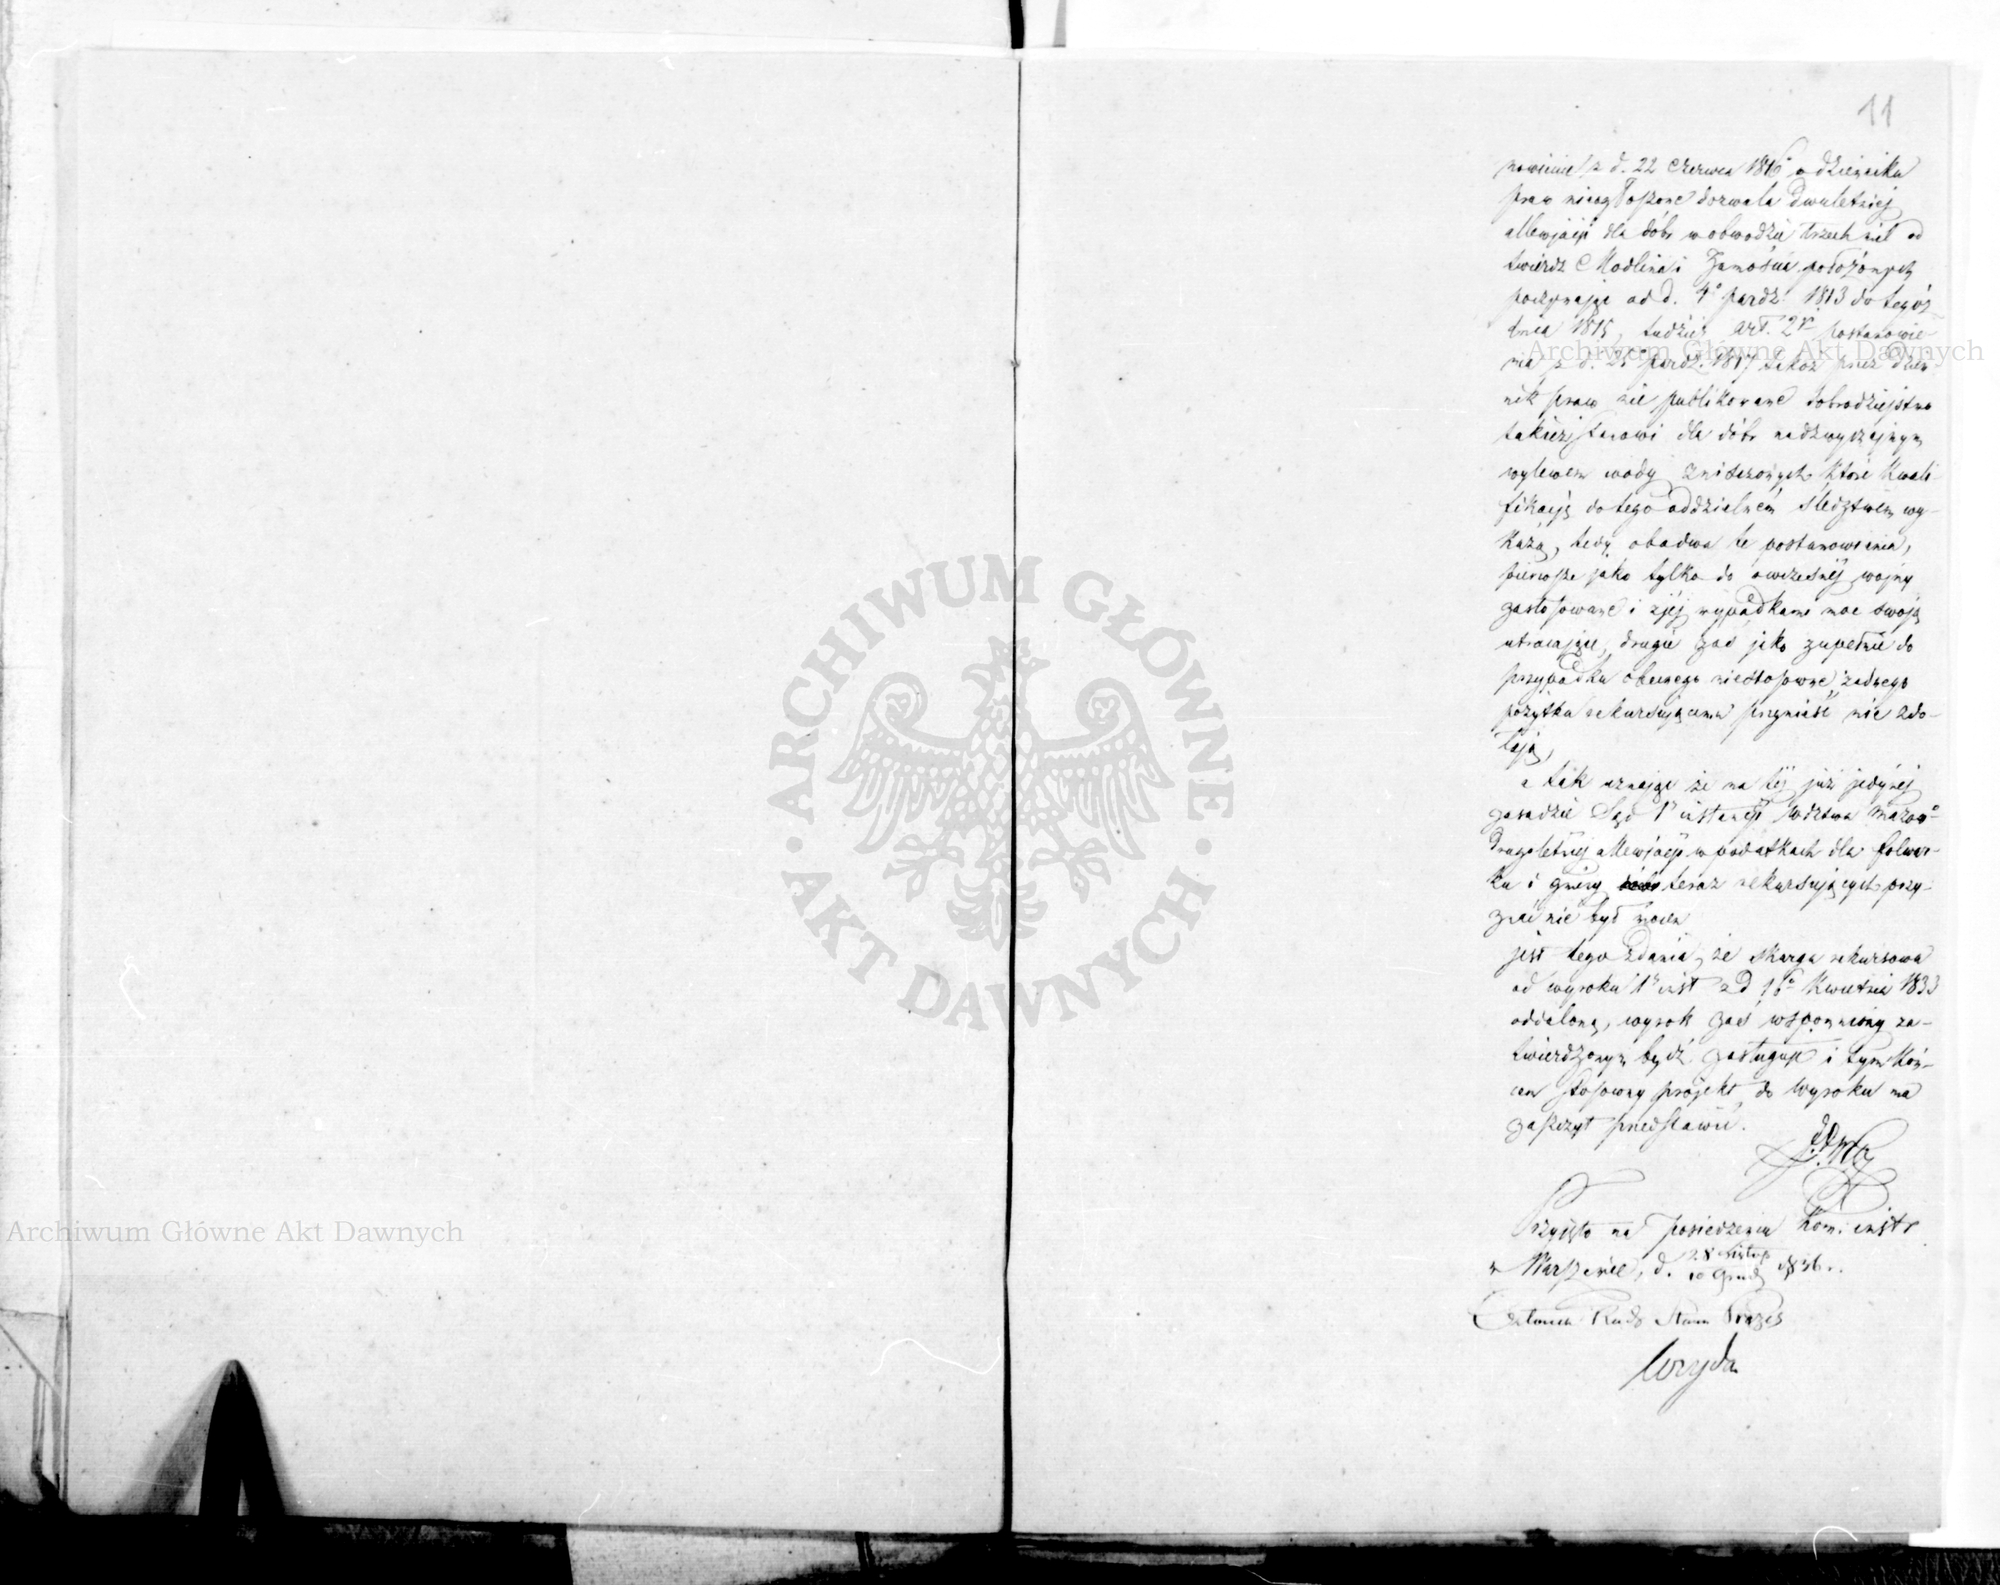 11
nowienie z d. 22 Czerwca 1816 o dzienniku
praw nieogłoszone dozwala dwuletniej
allewjacji dla dóbr w obwodzie trzech mil od
twierdz Modlina i Zamościa położonych
poczynając od d. 1° paźdz. 1813 do tegoż
dnia 1815, tudzież art. 2 postanowie-
nia z d. 25 paźdz. 1817 także przez dzien-
nik praw nie publikowane dobrodziejstwo
takież stanowi dla dóbr nadzwyczajnym
wylewem wody zniszczonych które kwali-
fikacją do tego oddzielném śledztwem wy-
każą, tedy obadwa te postanowienia,
pierwsze jako tylko do owczesnej wojny
zastosowane i z jej wypadkami moc swoją
utracające, drugie zaś jako zupełnie do
przypadku obecnego niestosowne żadnego
pożytku rekursującemu przynieść nie zdo-
łają,
a tak uznając że na tej już jedynej
zasadzie Sąd 1 instancji Wdztwa Mazow
drugoletniej allewjacji w podatkach dla folwar-
ku i gminy teraz rekursujących przy-
znać nie był mocen
jest tego zdania, że skarga rekursowa
od wyroku 1 inst z d 16 Kwietnia 1833
oddaloną, wyrok zaś wspomniony za-
twierdzonym być zasługuje i tym koń-
cem stosowny projekt do wyroku ma
zaszczyt przedstawić.
Przyjęto na posiedzeniu Kom. instr
w Warszawie, d. 28 Listop
10 Grud 1836 r.
Członek Rady Stanu Prezes
Woyda
Archiwum Główne Akt Dawnych
Archiwum Główne Akt Dawnych
ARCHIWUM GŁÓWNE
AKT DAWNYCH